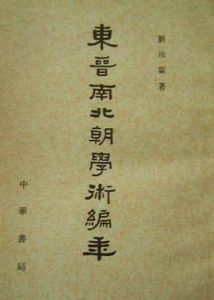 劉汝霖著
東晉南北朝學術編年
中華書局